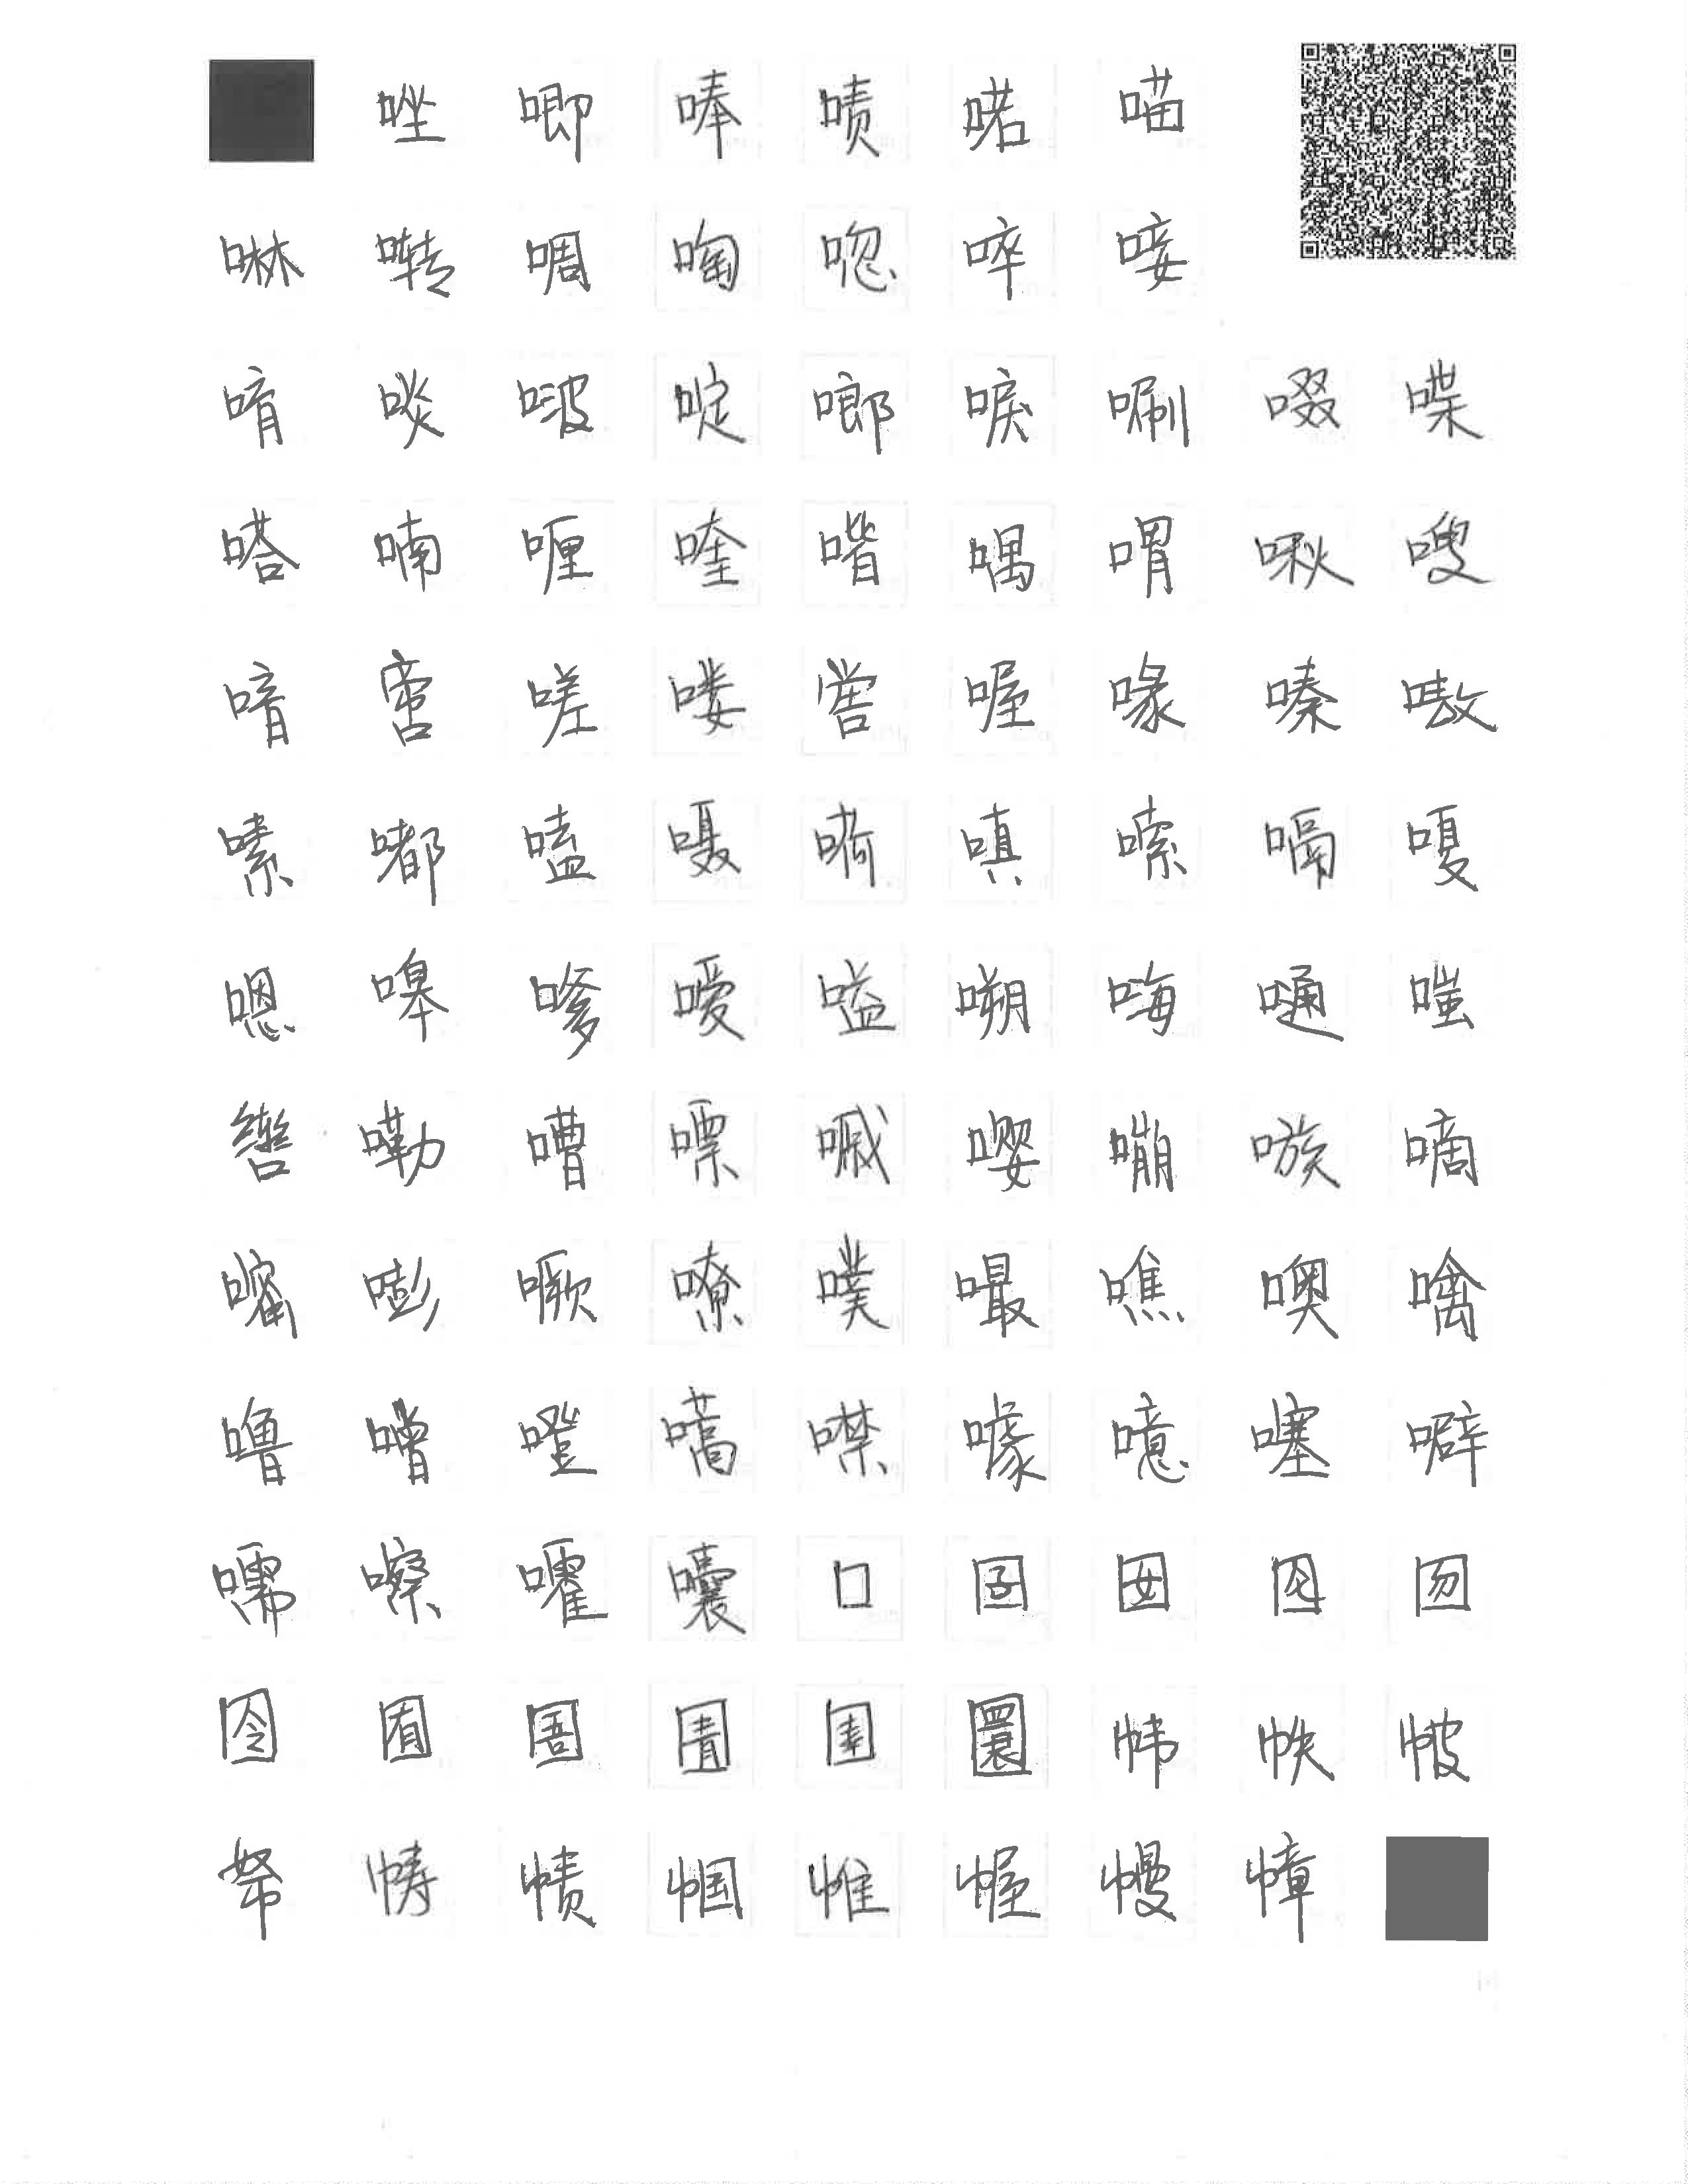 唑唧唪啧喏喵
啉啭啁啕唿啐唼
唷啖啵啶啷唳唰啜喋
嗒喃喱喹喈喁喟啾嗖
喑啻嗟喽喾喔喙嗪嗷
嗉嘟嗑嗫嗬嗔嗦嗝嗄
嗯嗥嗲嗳嗌嗍嗨嗵嗤
辔嘞嘈嘌嘁嘤嘣嗾嘀
嘧嘭噘嘹噗嘬噍噢噙
噜噌噔嚆噤噱噫噻噼
嚅嚓嚯囔囗囝囡囵囫
囹囿圄圊圉圜帏帙帔
帑帱帻帼帷幄幔幛